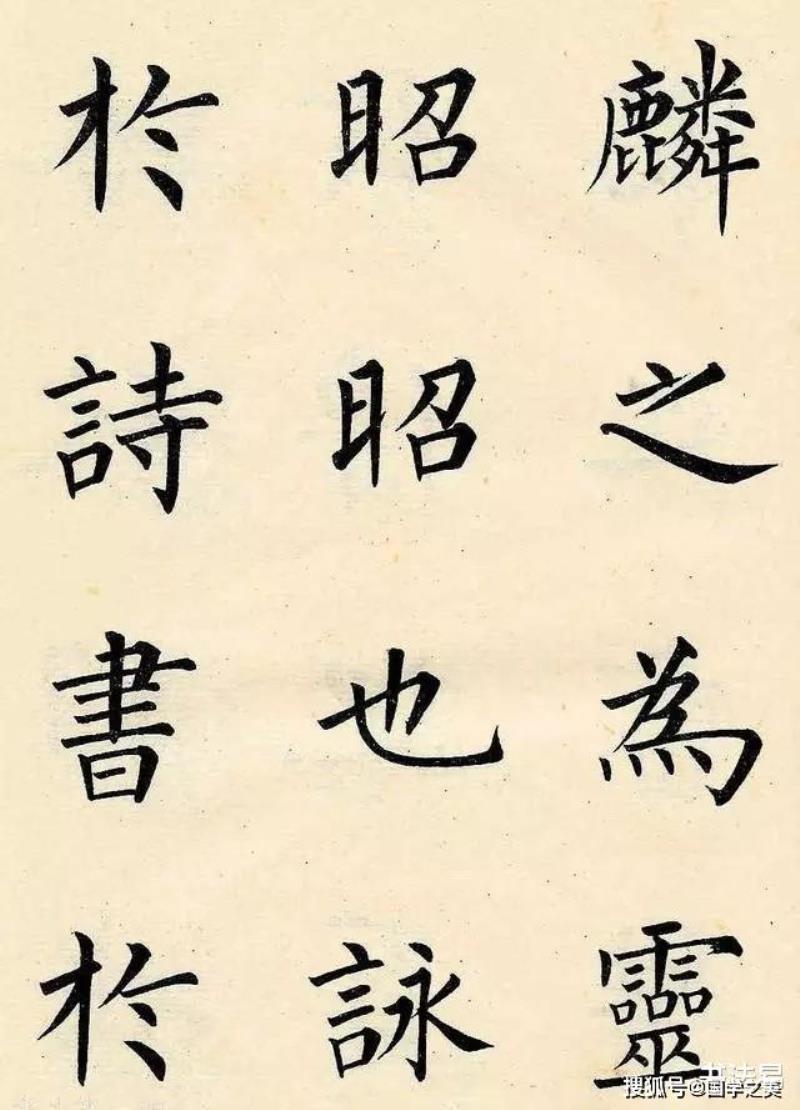 麟之為靈
昭昭也詠
於詩書於
书法易
搜狐号@国学之美